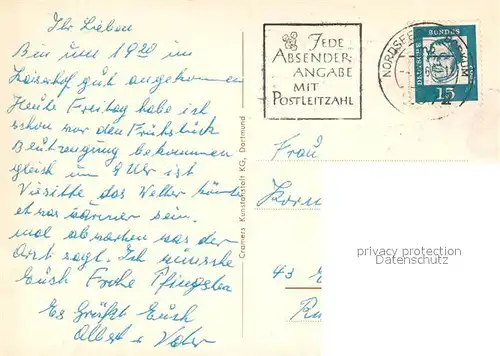 Ihr Lieben
Bin um 1920 im
Kaiserhof gut angekommen
Heute Freitag habe ich
schon vor den Frühstück
bekommen
gleich um 9 Uhr ist
Visitte das Wetter könnte
etwas wärmer sein.
mal abwarten was der
Arzt sagt. Ich wünsche
Euch Frohe Pfingsten
Es Grüßt Euch
Albert u Vater
Cramers Kunstanstalt KG, Dortmund
JEDE
ABSENDER-
ANGABE
MIT
POSTLEITZAHL
NORDSEE
DEUTSCHE BUNDES
15
Frau
43
privacy protection
Datenschutz